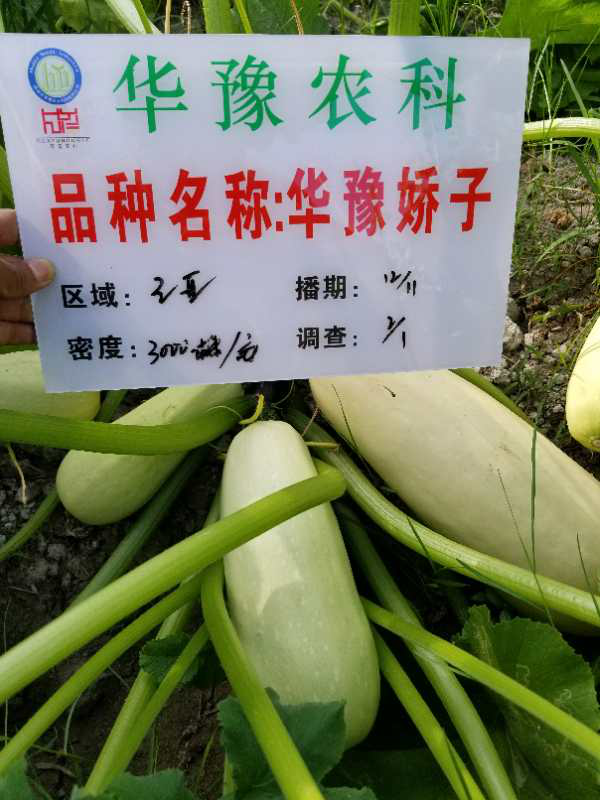 华豫农科
品种名称:华豫娇子
区域: 播期: 12/11
密度: 3000株/亩 调查: 2/1